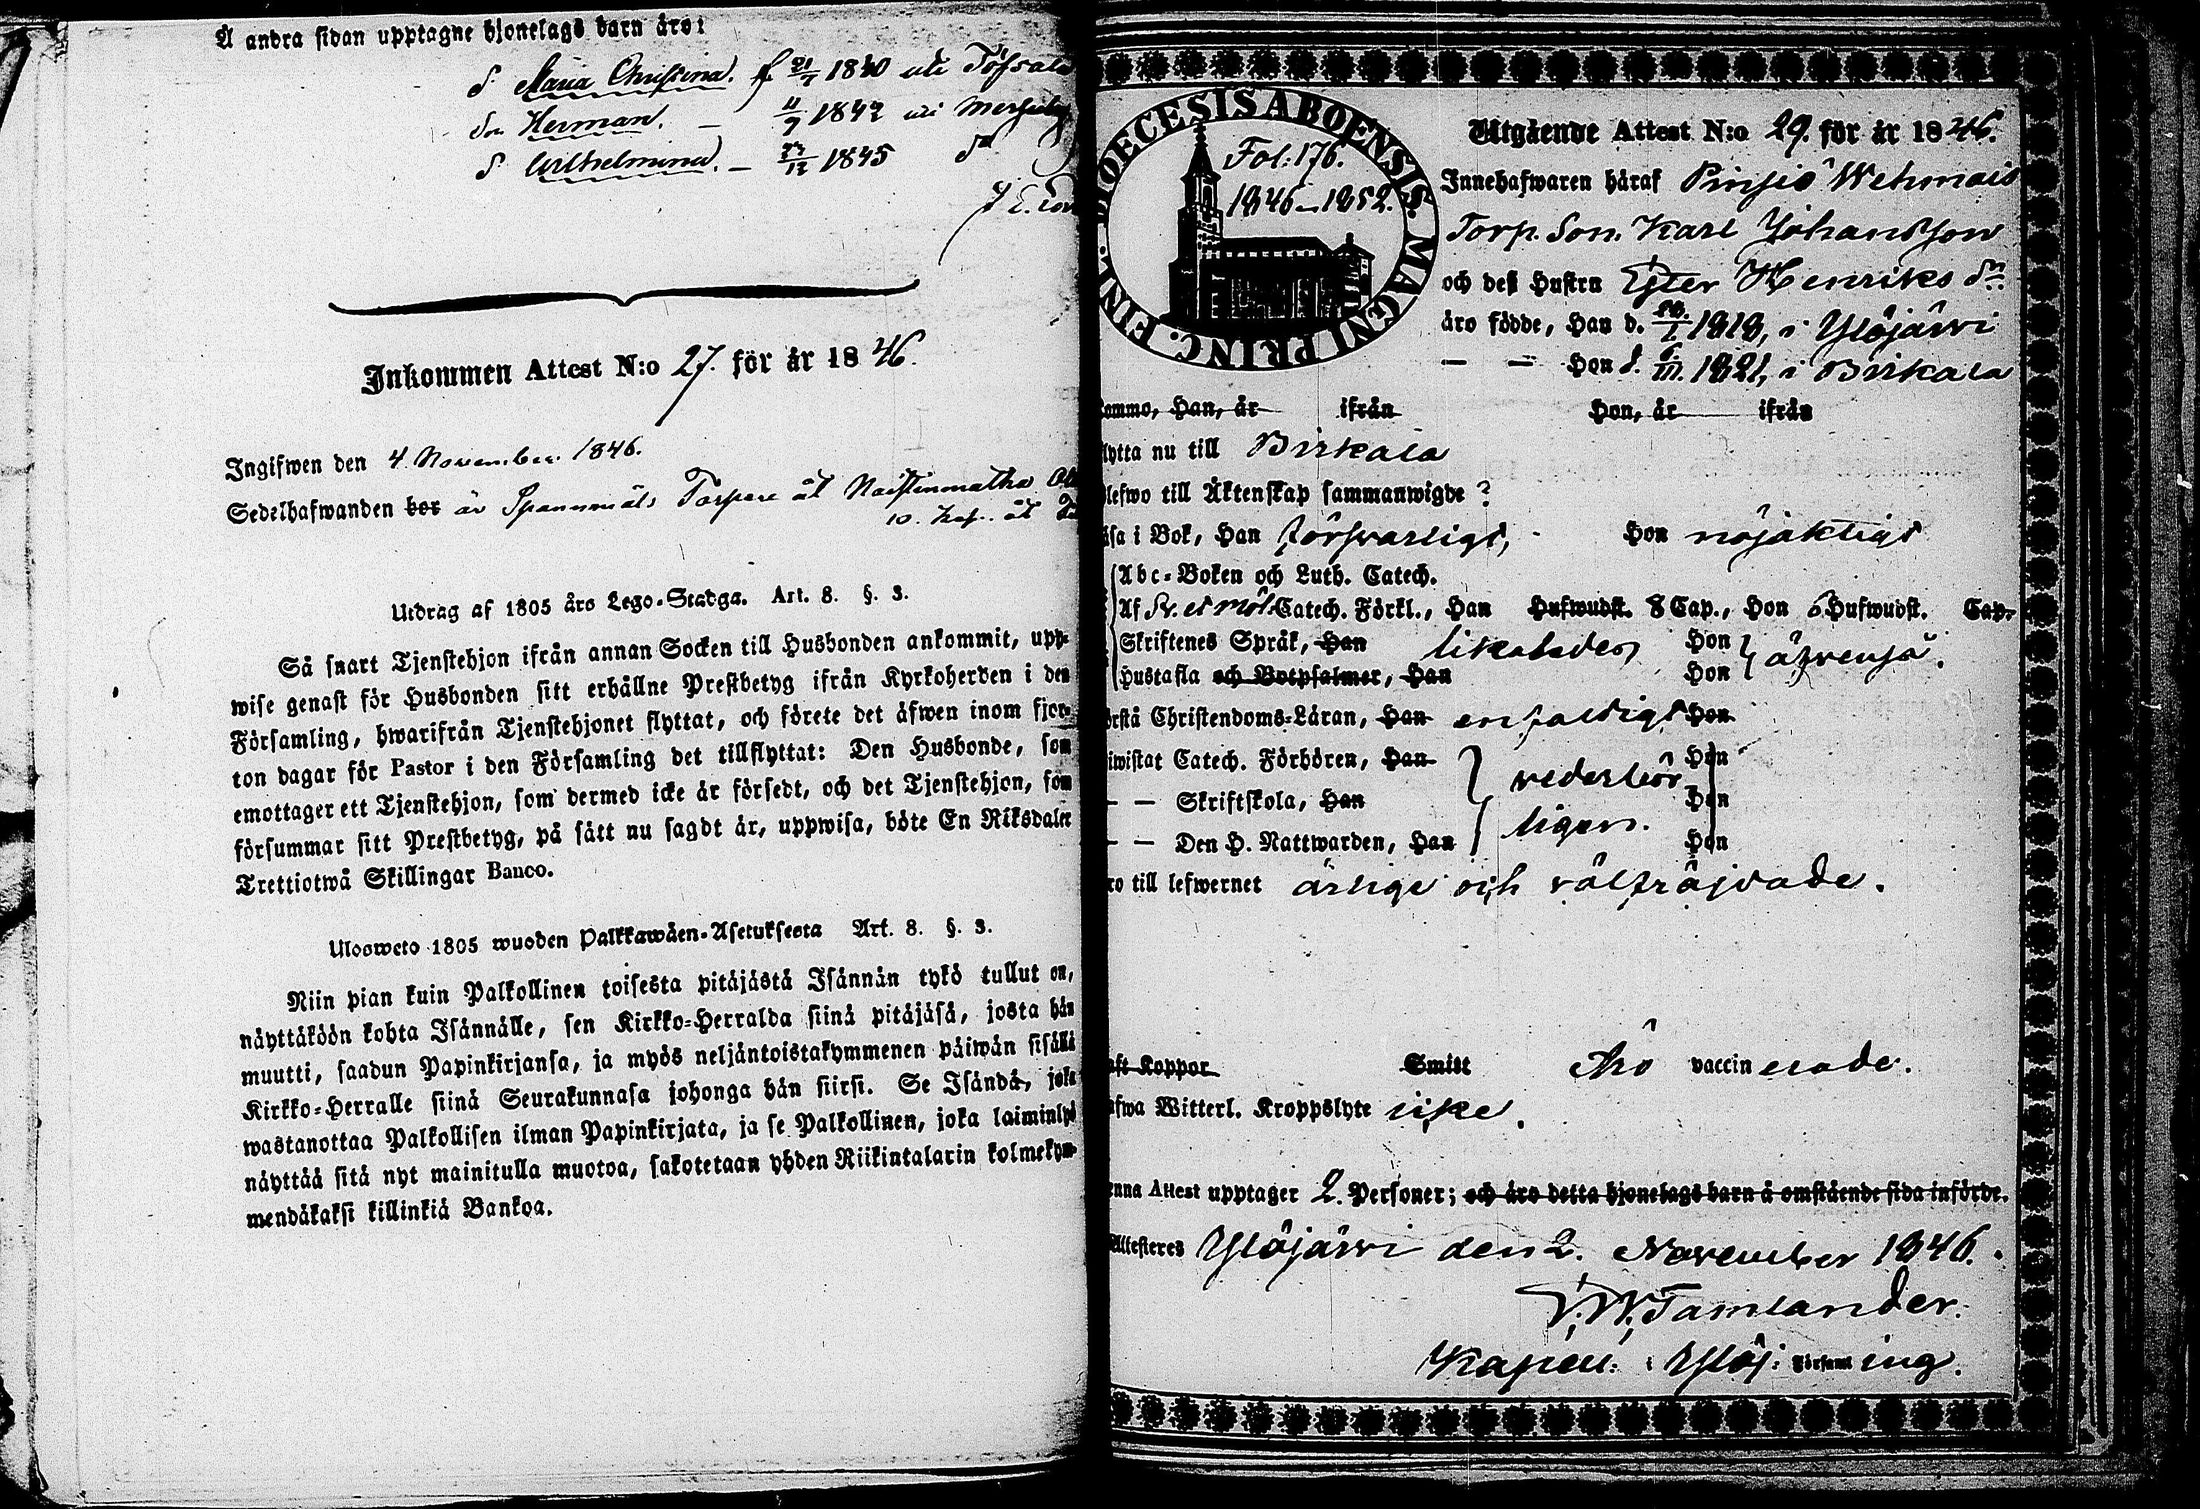 Å andra sidan upptagne hjonelags barn äro:
d. Maria Christina. f. 21/7 1840 uti
dn Herman. — 11/9 1842 uti
d. Wilhelmina. — 1845 do
Inkommen Attest N:o 27. för år 1846.
Ingifwen den 4 November 1846.
Sedelhafwanden bor är Torpare åt
Utdrag af 1805 års Lego-Stadga. Art. 8. §. 3.
Så snart Tjenstehjon ifrån annan Socken till Husbonden ankommit, upp-
wise genast för Husbonden sitt erhållne Prestbetyg ifrån Kyrkoherden i den
Församling, hwarifrån Tjenstehjonet flyttat, och förete det äfwen inom fjor-
ton dagar för Pastor i den Församling det tillflyttat: Den Husbonde, som
emottager ett Tjenstehjon, som dermed icke är försedt, och det Tjenstehjon, som
försummar sitt Prestbetyg, på sätt nu sagdt är, uppwisa, böte En Riksdaler
Trettiotwå Skillingar Banco.
Ulosweto 1805 wuoden Palkkawäen-Asetuksesta Art. 8. §. 3.
Niin pian kuin Palkollinen toisesta pitäjästä Isännän tykö tullut on,
näyttäköön kohta Isännälle, sen Kirkko-Herralda siinä pitäjäsä, josta hän
muutti, saadun Papinkirjansa, ja myös neljäntoistakymmenen päiwän sisällä
Kirkko-Herralle siinä Seurakunnasa johonga hän siirsi. Se Isändä, joka
wastanottaa Palkollisen ilman Papinkirjata, ja se Palkollinen, joka laiminlyö
näyttää sitä nyt mainitulla muotoa, sakotetaan yhden Riikintalarin kolmekym-
mendäkaksi killinkiä Bankoa.
DIOECESIS ABOENSIS. MAGNI PRINC. FINL.
Fol: 176.
1846–1852.
Utgående Attest N:o 29. för år 1846.
Innehafwaren häraf Pinsiö Wehmais
Torp. Son. Karl Johansson
och dess Hustru Ester Henriks dr
äro födde, Han d. 20/1 1818, i Ylöjärvi
— — Hon d. 6/III. 1821, i Birkala
komno, Han, år ifrån Hon, år ifrån
flytta nu till Birkala
blefwo till Äktenskap sammanwigde ?
läsa i Bok, Han försvarligt, Hon nöjaktigt
Abc-Boken och Luth. Catech.
Af Sv. et möl Catech. Förkl., Han Hufwudst. 8 Cap., Hon 6 Hufwudst. Cap.
Skriftenes Språk, Han likaledes Hon äfvenså.
Hustafla och Botpsalmer, Han Hon
förstå Christendoms-Läran, Han enfaldigt Hon
biwistat Catech. Förhören, Han vederbör- Hon
— — Skriftskola, Han ligen. Hon
— — Den H. Nattwarden, Han Hon
äro till lefwernet ärlige och välfräjdade.
haft Koppor Smitt Äro vaccinerade.
hafwa Witterl. Kroppslyte icke.
Denna Attest upptager 2. Personer; och äro detta hjonelags barn å omstående sida införde.
Attesteres Ylöjärvi den 2. November 1846.
Tamlander.
Kapell: i Ylöj: Församling.